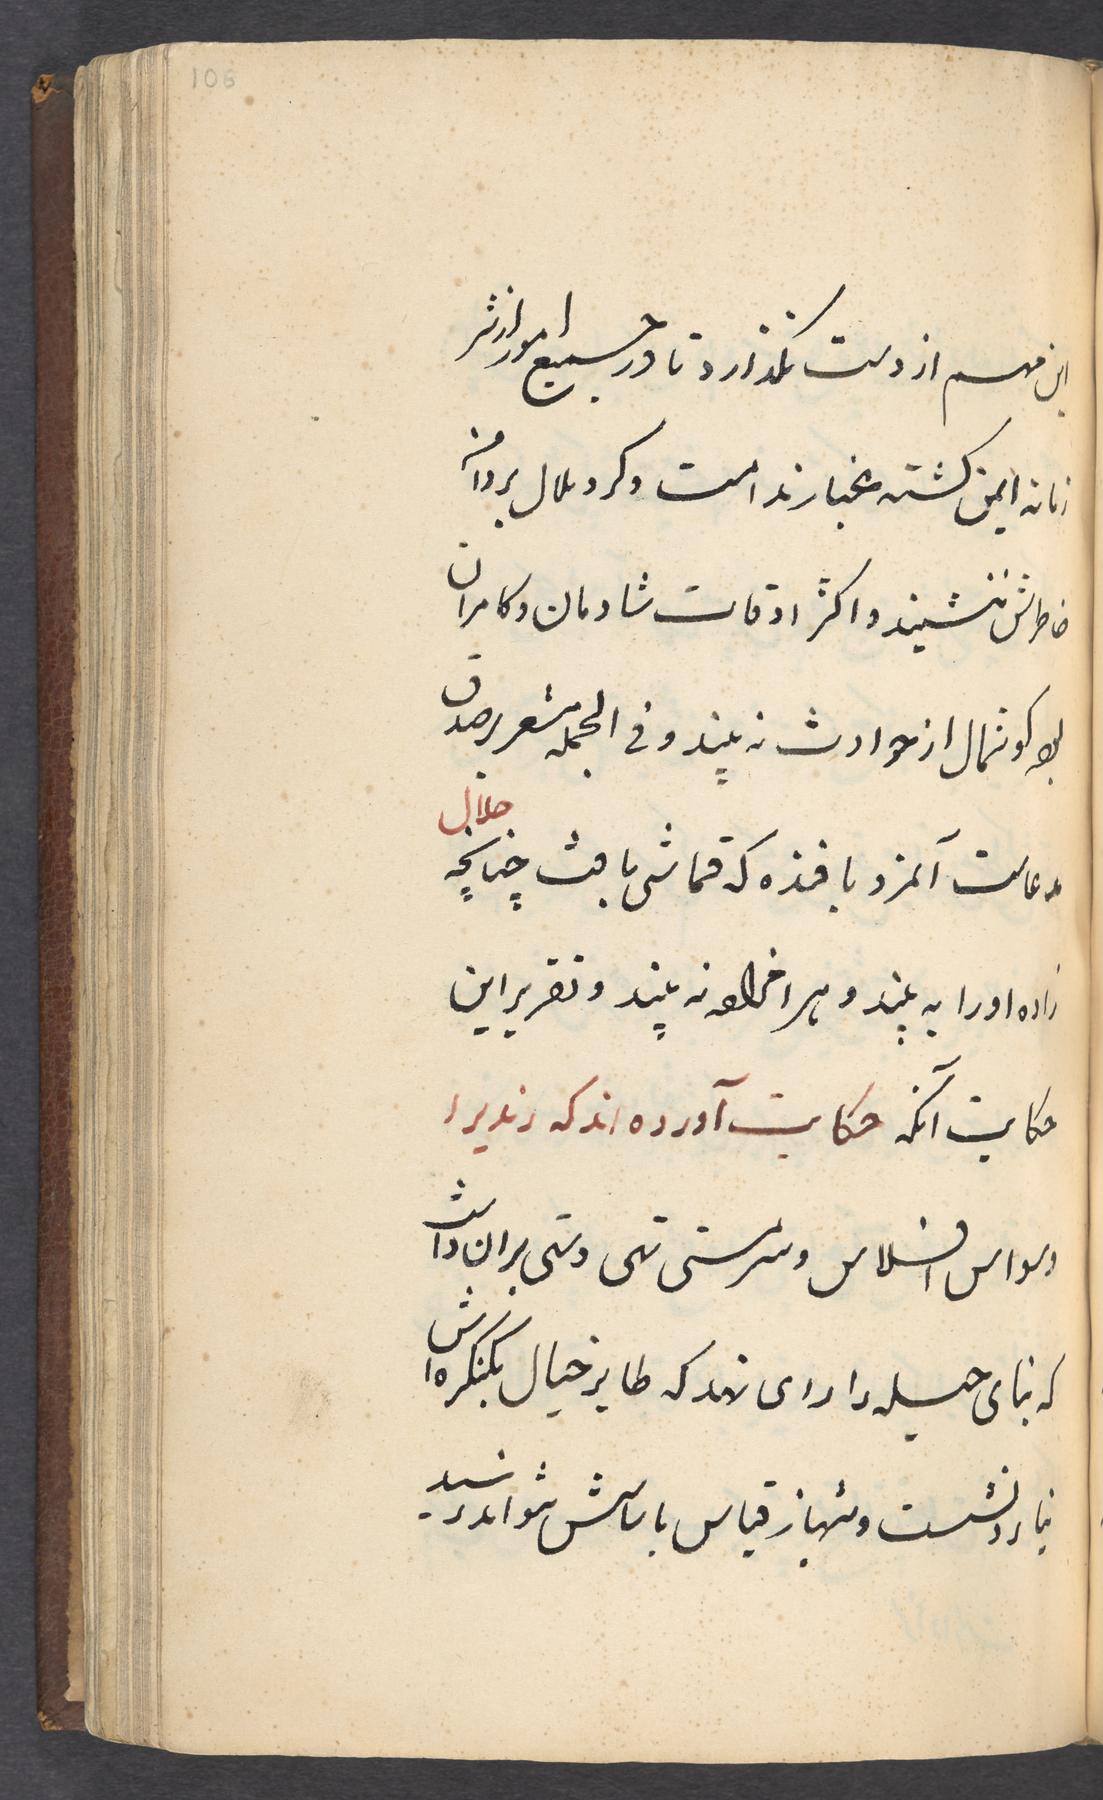 106
این مهم از دست نگذارد تا در جمیع امور از شر
زمانه ایمن گشته غبار ندامت و کرد ملال بر دامن
خاطرش ننشیند و اکثر اوقات شادمان و کامران
بوده کوشمال از حوادث نه بیند و فی الجمله مشعر بر صدق
مدعاست آنمزد بافنده که قماشی بافت چنانچه حلال
زاده او را به بیند و حرامزاده نه بیند و تقریر این
حکایت آنکه حکایت آورده اند که رندیرا
وسواس افلاس و سرمستی تهی دستی بران داشت
که بنای حیله را رای نهد که طایر خیال بکنکره اش
نیارد نشست و شهباز قیاس باساسش نتواند رسید